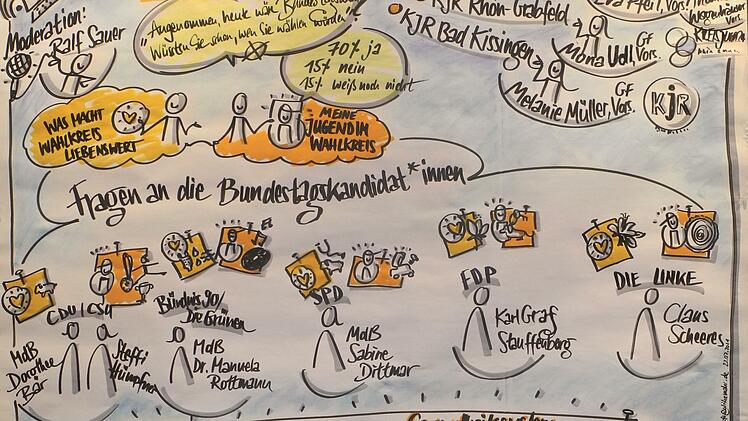 Moderation!
Ralf Sauer
„Angenommen, heute wär Bundes
Wüssten Sie schon, wen Sie wählen würden?"
70% ja
15% nein
15% weiß noch nicht
KJR Rhön-Grabfeld
KJR Bad Kissingen
Vors.
Gf
Mona Udl, Vors.
Gf
Melanie Müller, Vors.
KjR
WAS MACHT
WAHLKREIS
LIEBENSWERT
MEINE
JUGEND IM
WAHLKREIS
Fragen an die Bundestagskandidat*innen
CDU/CSU
MdB
Dorothee
Bär
Steffi
Hümpfner
Bündnis 90/
Die Grünen
MdB
Dr. Manuela
Rottmann
SPD
MdB
Sabine
Dittmar
FDP
Karl Graf
Stauffenberg
DIE LINKE
Claus
Scheeres